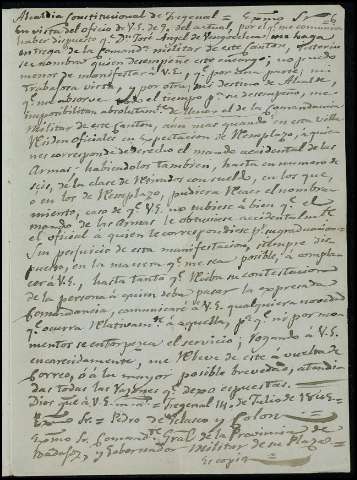 Alcaldia Constitucional de Fregenal = Exmo Sr =
En vista del oficio de V.E. de 9. del actual, por el qe me comunica
haber dispuesto qe Dn José Angel de me haga
entrega de la Comanda militar de este Canton, interin
se nombra quien desempeñe este encargo; no puedo
menos de manifestar á V.E. y qe por una parte, mi
trabajosa vista, y por otra, mi destino de Alcalde,
qe me absorve todo el tiempo pa su desempeño, me
imposibilitan absolutamte de la Comandancia
Militar de este Canton, aun mas quando en esta villa
residen oficiales en espectacion de Remplazo, á quie
nes corresponde de derecho el mando accidental de las
Armas habiendolos tambien, hasta en numero de
seis, de la clase de Retirados con sueldo, en los que,
o en los de Remplazo, pudiera recaer el nombra
miento, caso de qe V.E. no tubiese á bien qe el
mando de las Armas le obtubiese accidentalmte
el oficial a quien le correspondiese pr su graduacion =
Sin perjuicio de esta manifestacion, siempre dis
puesto, en la manera qe me sea posible, á compla
cer á V.E., hasta tanto qe reciba su contestacion
de la persona á quien deba pasar la expresada
Comandancia, comunicaré á V.E. qualquiera novedad
qe ocurra relativamte á aquella, pa qe ni por mo
mentos se entorpezca el servicio; rogando á V.E.
encarecidamente, me releve de éste á vuelta de
Correo, ó á la mayor posible brevedad, atendi
das todas las razones qe dejo espuestas. =
Dios gue á V.E. ms as = Fregenal 14. de Julio de
Exmo Sr. = Pedro de Velasco y Colon =
Exmo Sr. Comandte Gral de la Provincia de
Badajoz, y Gobernador Militar de su Plaza =
Es copia